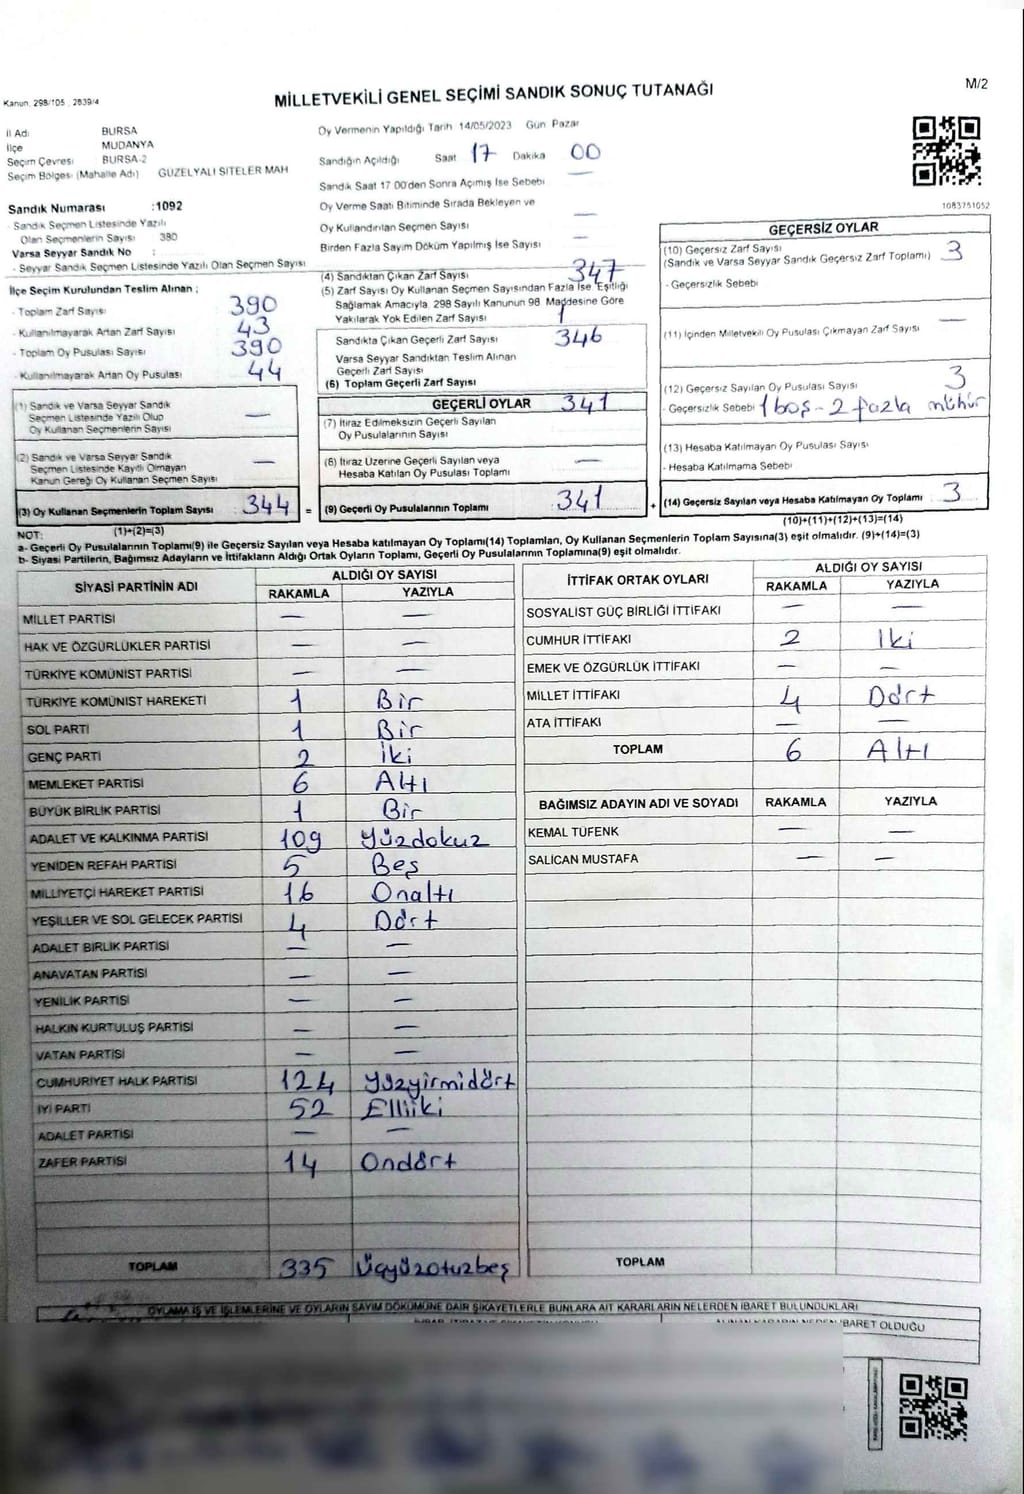 Kanun: 298/105 ; 2839/4
MİLLETVEKİLİ GENEL SEÇİMİ SANDIK SONUÇ TUTANAĞI
M/2
İl Adı BURSA
İlçe MUDANYA
Seçim Çevresi BURSA-2
Seçim Bölgesi (Mahalle Adı) GÜZELYALI SİTELER MAH
Sandık Numarası :1092
- Sandık Seçmen Listesinde Yazılı
Olan Seçmenlerin Sayısı 380
Varsa Seyyar Sandık No :
- Seyyar Sandık Seçmen Listesinde Yazılı Olan Seçmen Sayısı
Oy Vermenin Yapıldığı Tarih 14/05/2023 Gün Pazar
Sandığın Açıldığı Saat 17 Dakika 00
Sandık Saat 17 00'den Sonra Açımış İse Sebebi —
Oy Verme Saati Bitiminde Sırada Bekleyen ve
Oy Kullandırılan Seçmen Sayısı —
Birden Fazla Sayım Döküm Yapılmış İse Sayısı —
1083751052
İlçe Seçim Kurulundan Teslim Alınan ;
- Toplam Zarf Sayısı 390
- Kullanılmayarak Artan Zarf Sayısı 43
- Toplam Oy Pusulası Sayısı 390
- Kullanılmayarak Artan Oy Pusulası 44
(1) Sandık ve Varsa Seyyar Sandık
Seçmen Listesinde Yazılı Olup
Oy Kullanan Seçmenlerin Sayısı —
(2) Sandık ve Varsa Seyyar Sandık
Seçmen Listesinde Kayıtlı Olmayan
Kanun Gereği Oy Kullanan Seçmen Sayısı —
(3) Oy Kullanan Seçmenlerin Toplam Sayısı 344 =
(1)+(2)=(3)
(4) Sandıktan Çıkan Zarf Sayısı 347
(5) Zarf Sayısı Oy Kullanan Seçmen Sayısından Fazla İse Eşitliği
Sağlamak Amacıyla, 298 Sayılı Kanunun 98. Maddesine Göre
Yakılarak Yok Edilen Zarf Sayısı 1
Sandıkta Çıkan Geçerli Zarf Sayısı 346
Varsa Seyyar Sandıktan Teslim Alınan
Geçerli Zarf Sayısı
(6) Toplam Geçerli Zarf Sayısı
GEÇERLİ OYLAR 341
(7) İtiraz Edilmeksizin Geçerli Sayılan
Oy Pusulalarının Sayısı
(8) İtiraz Üzerine Geçerli Sayılan veya
Hesaba Katılan Oy Pusulası Toplamı —
(9) Geçerli Oy Pusulalarının Toplamı 341 +
GEÇERSİZ OYLAR
(10) Geçersiz Zarf Sayısı 3
(Sandık ve Varsa Seyyar Sandık Geçersiz Zarf Toplamı)
- Geçersizlik Sebebi
(11) İçinden Milletvekili Oy Pusulası Çıkmayan Zarf Sayısı —
(12) Geçersiz Sayılan Oy Pusulası Sayısı 3
- Geçersizlik Sebebi 1 boş - 2 fazla mühür
(13) Hesaba Katılmayan Oy Pusulası Sayısı
- Hesaba Katılmama Sebebi
(14) Geçersiz Sayılan veya Hesaba Katılmayan Oy Toplamı 3
(10)+(11)+(12)+(13)=(14)
NOT:
a- Geçerli Oy Pusulalarının Toplamı(9) ile Geçersiz Sayılan veya Hesaba katılmayan Oy Toplamı(14) Toplamları, Oy Kullanan Seçmenlerin Toplam Sayısına(3) eşit olmalıdır. (9)+(14)=(3)
b- Siyasi Partilerin, Bağımsız Adayların ve İttifakların Aldığı Ortak Oyların Toplamı, Geçerli Oy Pusulalarının Toplamına(9) eşit olmalıdır.
SİYASİ PARTİNİN ADI ALDIĞI OY SAYISI
RAKAMLA YAZIYLA
MİLLET PARTİSİ — —
HAK VE ÖZGÜRLÜKLER PARTİSİ — —
TÜRKİYE KOMÜNİST PARTİSİ — —
TÜRKİYE KOMÜNİST HAREKETİ 1 Bir
SOL PARTİ 1 Bir
GENÇ PARTİ 2 İki
MEMLEKET PARTİSİ 6 Altı
BÜYÜK BİRLİK PARTİSİ 1 Bir
ADALET VE KALKINMA PARTİSİ 109 Yüzdokuz
YENİDEN REFAH PARTİSİ 5 Beş
MİLLİYETÇİ HAREKET PARTİSİ 16 Onaltı
YEŞİLLER VE SOL GELECEK PARTİSİ 4 Dört
ADALET BİRLİK PARTİSİ — —
ANAVATAN PARTİSİ — —
YENİLİK PARTİSİ — —
HALKIN KURTULUŞ PARTİSİ — —
VATAN PARTİSİ — —
CUMHURİYET HALK PARTİSİ 124 Yüzyirmidört
İYİ PARTİ 52 Elliiki
ADALET PARTİSİ — —
ZAFER PARTİSİ 14 Ondört
TOPLAM 335 Üçyüzotuzbeş
İTTİFAK ORTAK OYLARI ALDIĞI OY SAYISI
RAKAMLA YAZIYLA
SOSYALİST GÜÇ BİRLİĞİ İTTİFAKI — —
CUMHUR İTTİFAKI 2 İki
EMEK VE ÖZGÜRLÜK İTTİFAKI — —
MİLLET İTTİFAKI 4 Dört
ATA İTTİFAKI — —
TOPLAM 6 Altı
BAĞIMSIZ ADAYIN ADI VE SOYADI RAKAMLA YAZIYLA
KEMAL TÜFENK — —
SALİCAN MUSTAFA — —
TOPLAM
OYLAMA İŞ VE İŞLEMLERİNE VE OYLARIN SAYIM DÖKÜMÜNE DAİR ŞİKAYETLERLE BUNLARA AİT KARARLARIN NELERDEN İBARET BULUNDUKLARI
İBARET OLDUĞU